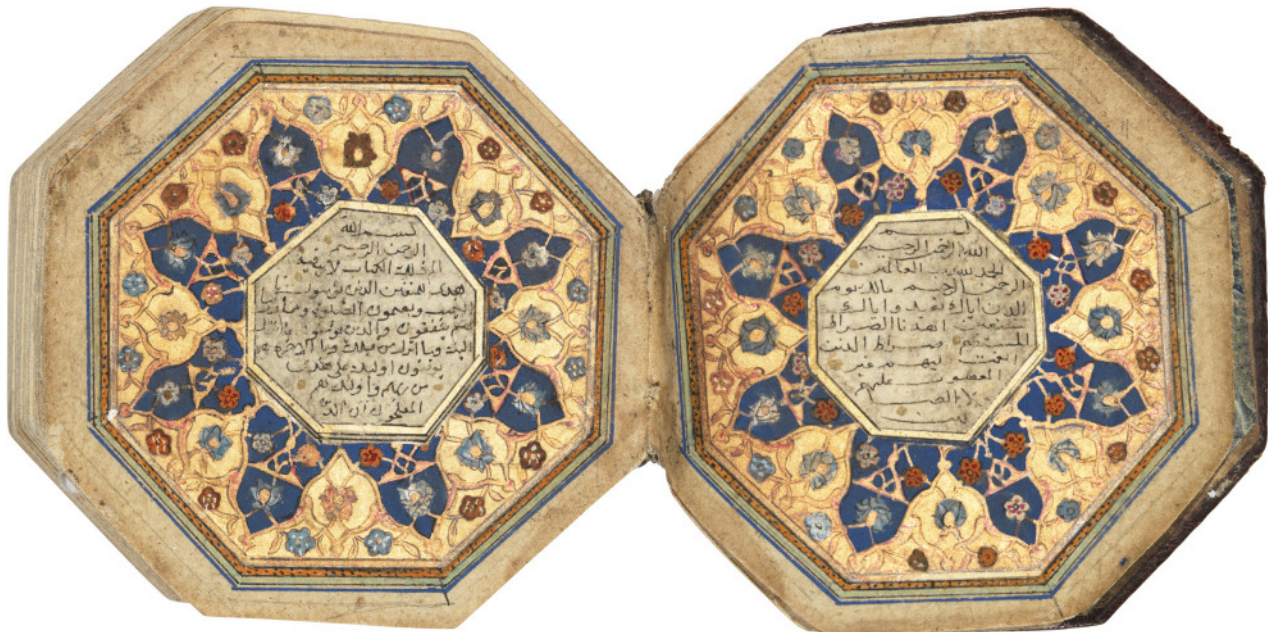 بسم
الله الرحمن الرحيم
الحمد لله رب العالمين
الرحمن الرحيم مالك يوم
الدين اياك نعبد واياك
نستعين اهدنا الصراط
المستقيم صراط الذين
انعمت عليهم غير
المغضوب عليهم
ولا الضا
لين
بسم الله
الرحمن الرحيم
الم ذلك الكتاب لا ريب فيه
هدى للمتقين الذين يؤمنون با
لغيب ويقيمون الصلوة ومما رزقنا
هم ينفقون والذين يؤمنون بما انزل
اليك وما انزل من قبلك وبالاخرة هم
يوقنون اولئك على هدى
من ربهم واولئك هم
المفلحون ان الذين